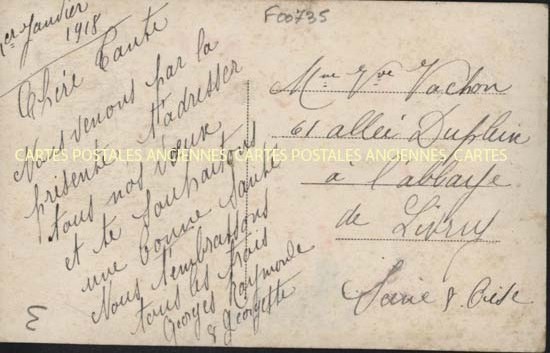 1er Janvier
1918
F00735
Chère Tante
Nous venons par la
présente t'adresser
tous nos vœux
et te souhaitons
une bonne santé
Nous t'embrassons
tous les trois
Georges Raymonde
& Georgette
Mme Vve Vachon
61 allée Duplein
à l'abbaye
de Livry
Seine & Oise
CARTES POSTALES ANCIENNES CARTES POSTALES ANCIENNES CARTES